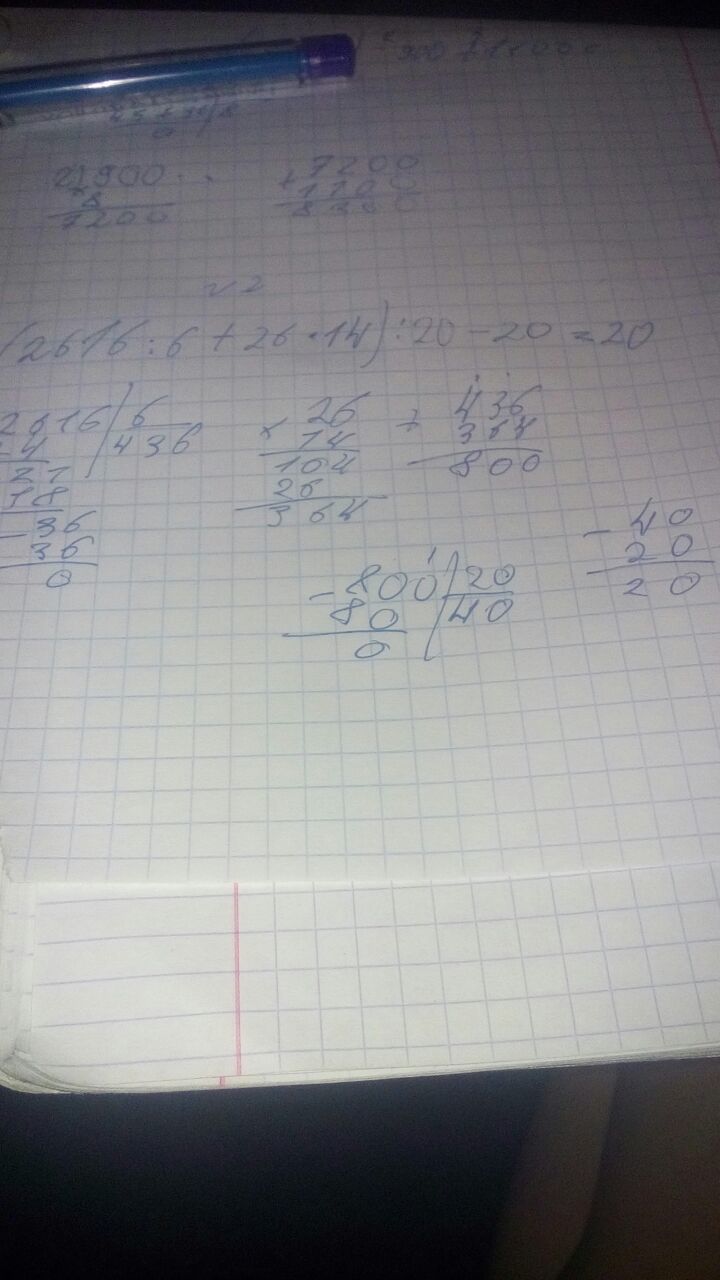 2) 900
× 8
7200
+ 7200
1100
8300
№2
(2616 : 6 + 26 · 14) : 20 - 20 = 20
2616 6
24 436
21
18
- 36
36
0
× 26
14
104
26
364
+ 436
364
800
- 800 20
80 40
0
- 40
20
20